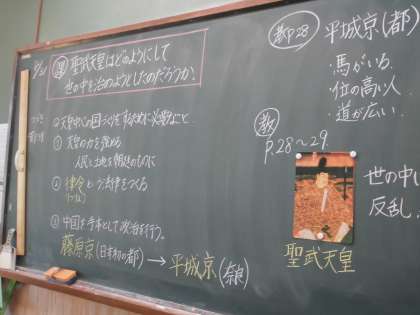 聖武天皇はどのようにして
世の中を治めようとしたのだろうか。
天皇中心の国づくりをするために必要なこと
① 天皇の力を強める
人民と土地を朝廷のものに
② 律令という法律をつくる
(りつりょう)
③ 中国を手本として政治を行う。
藤原京(日本初の都) → 平城京(奈良)
教P28 平城京(都)
・馬がいる
・位の高い人
・道が広い
教
P.28～29
聖武天皇
世の中
反乱